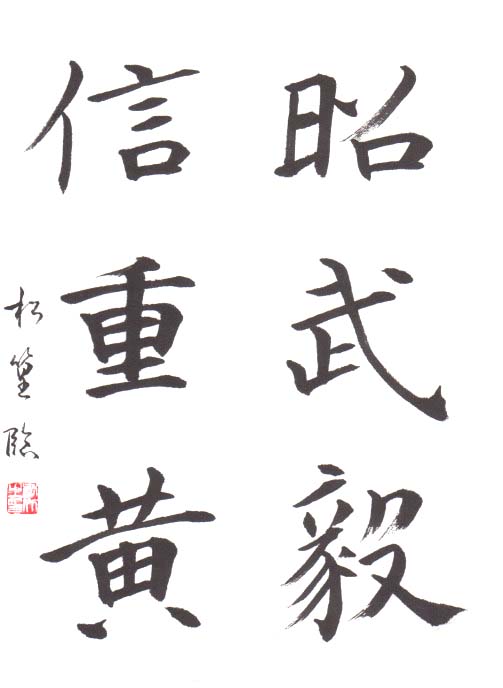 昭武毅
信重黄
松篁臨